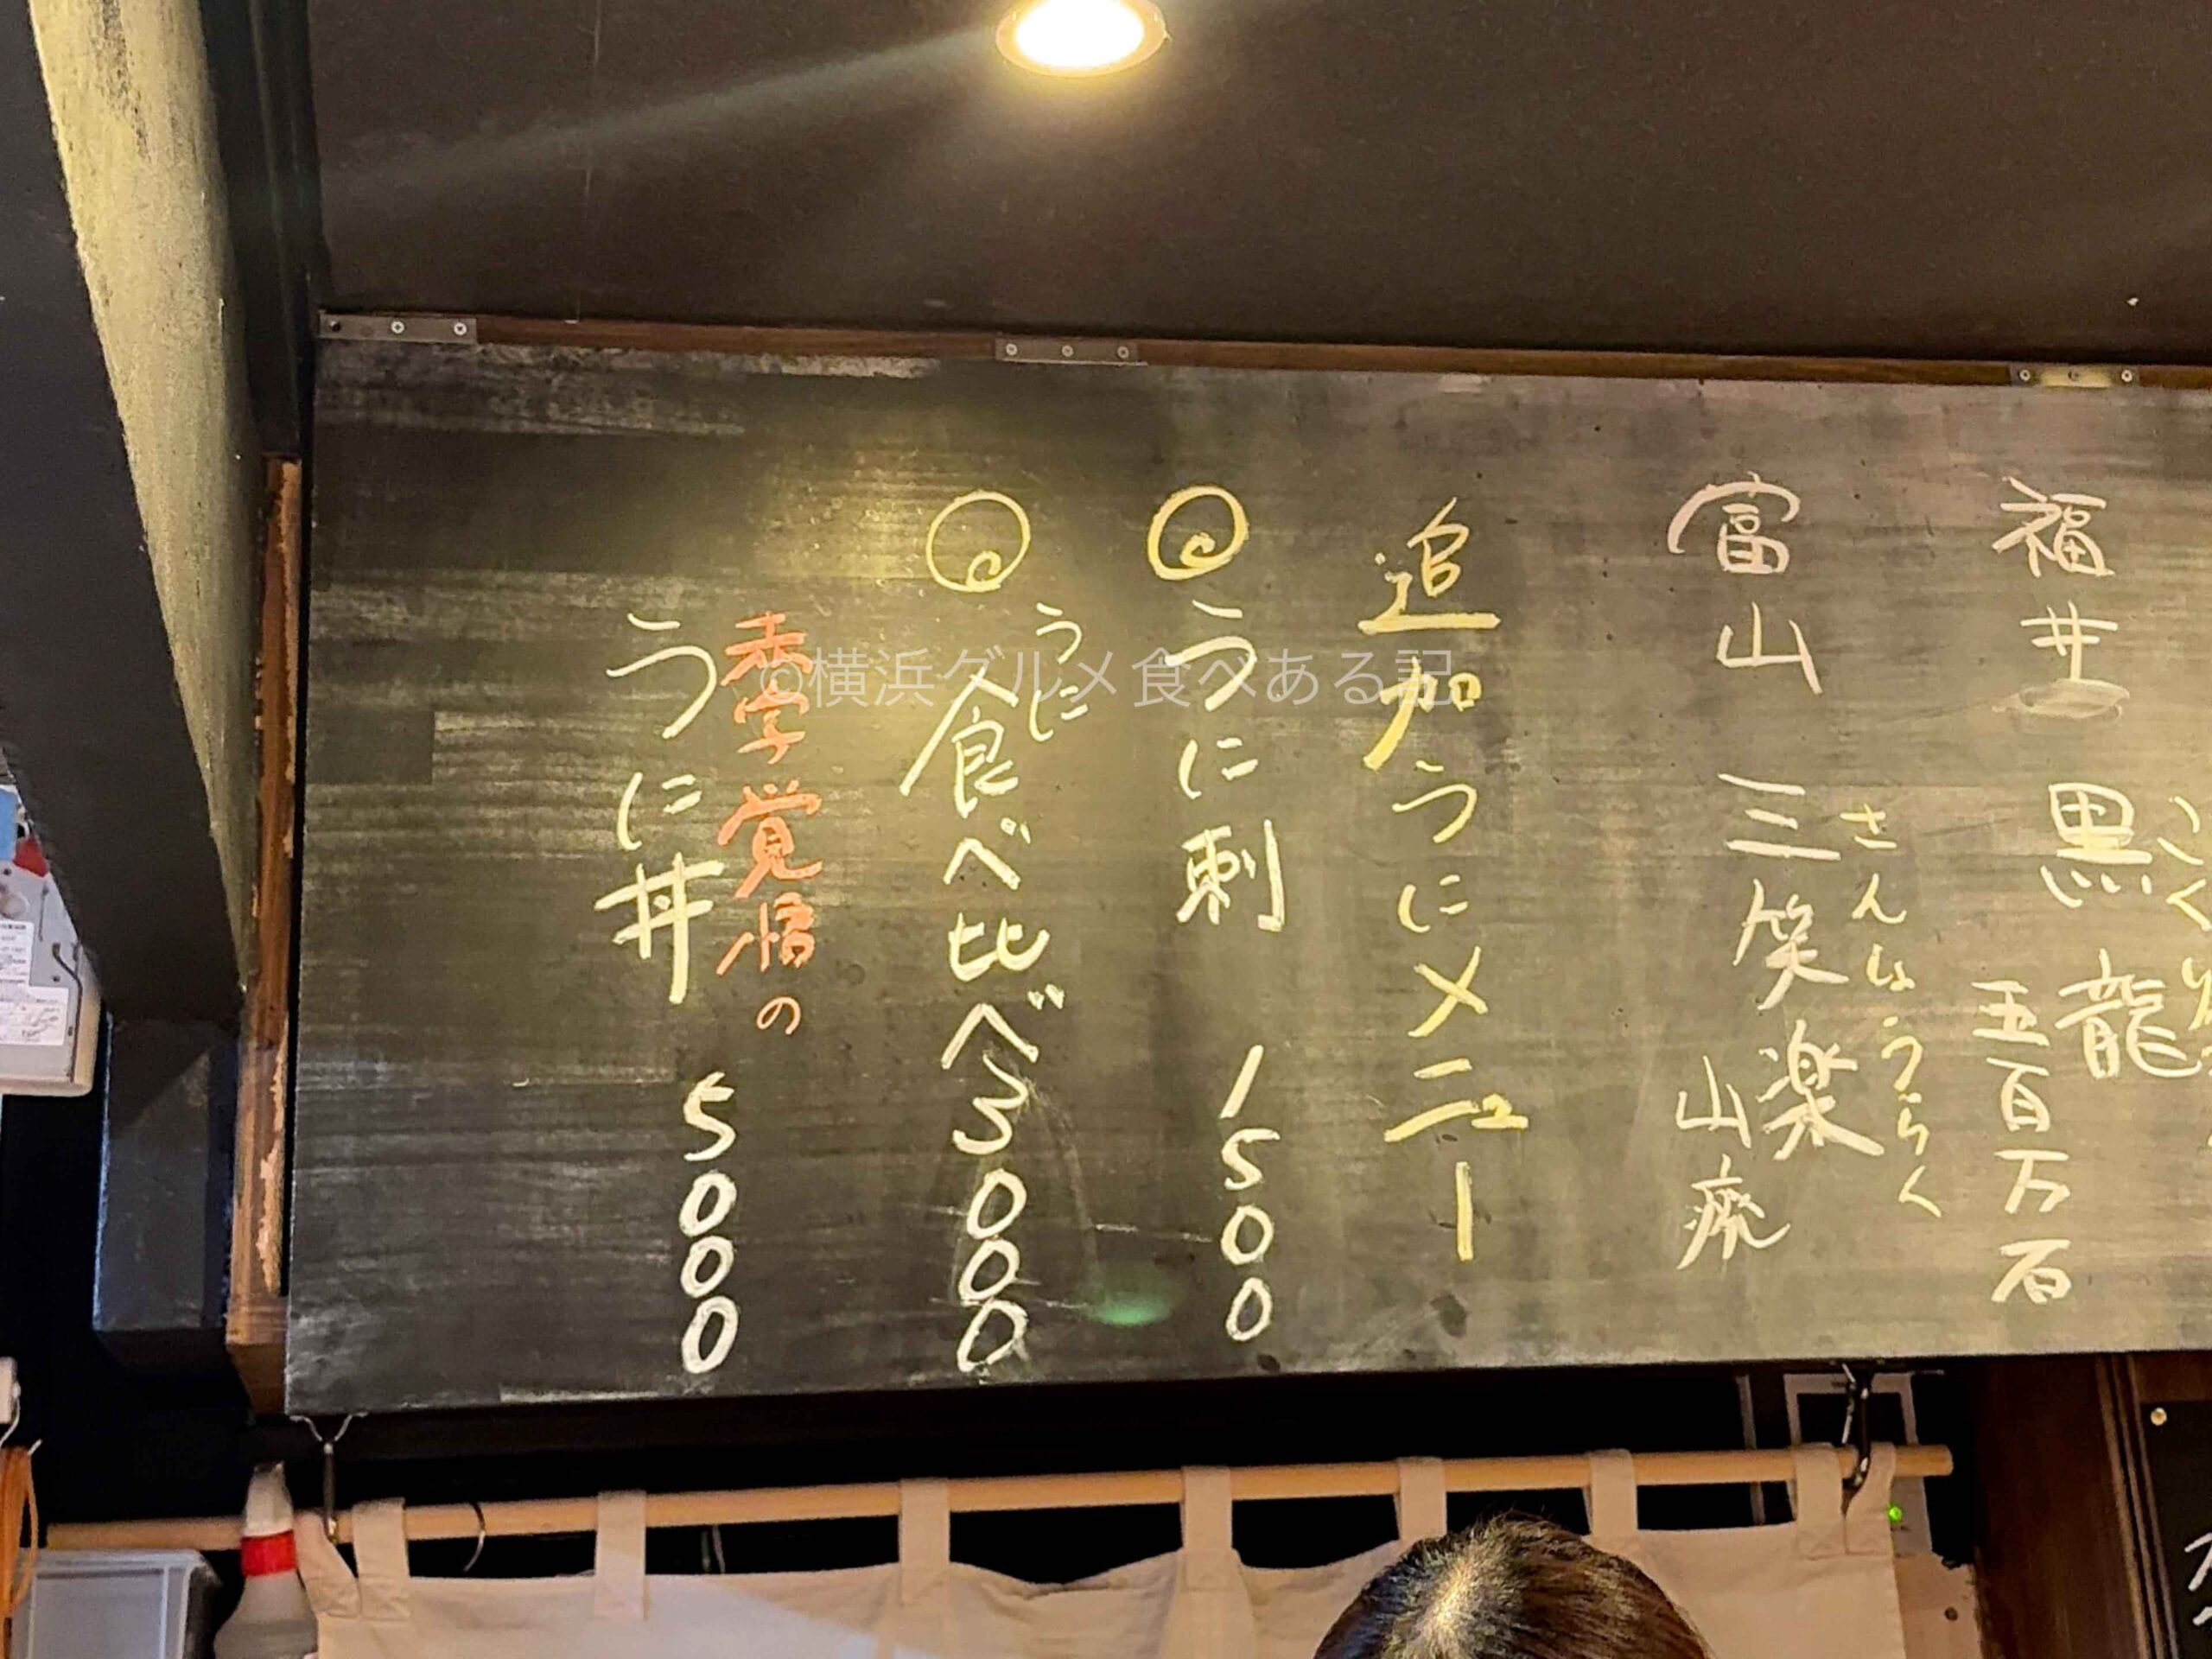 福井 黒龍 五百万石
富山 三笑楽 山廃
さんしょうらく
追加うにメニュー
うに刺 1500
うに
食べ比べ 3000
赤字覚悟の
うに丼 5000
©横浜グルメ食べある記